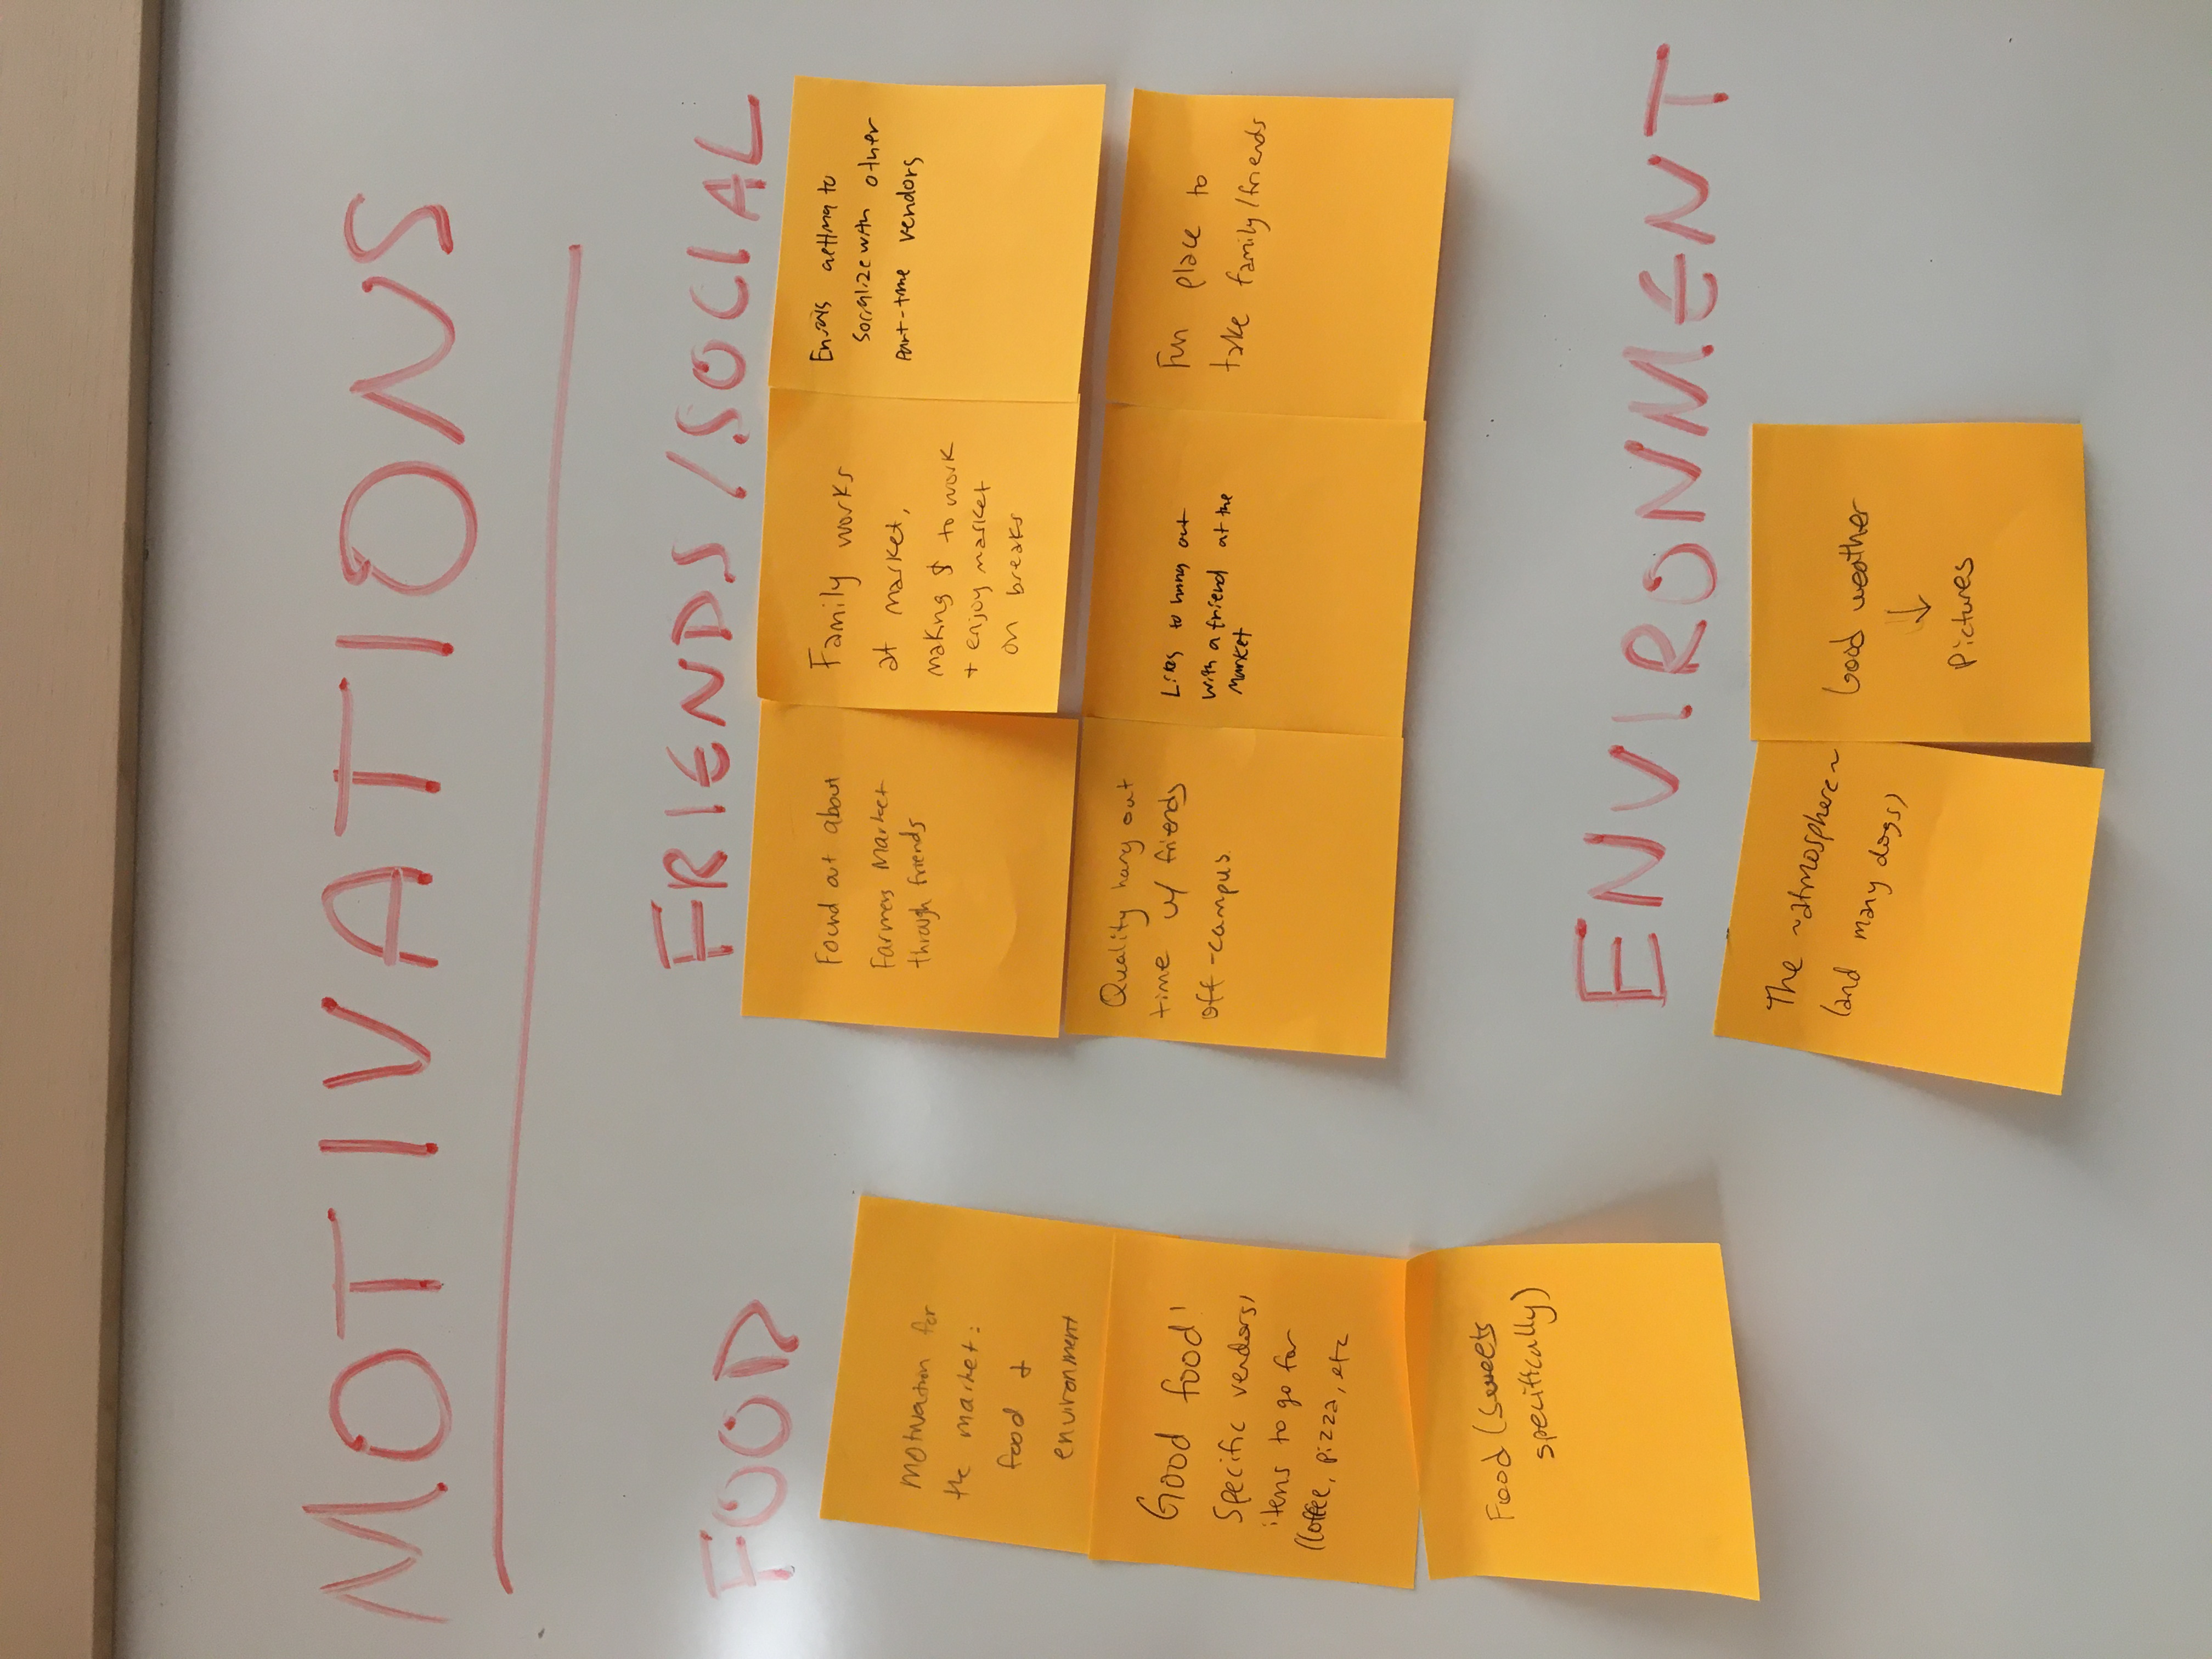 MOTIVATIONS
FOOD
Motivation for
the market:
food +
environment
Good food!
Specific vendors/
items to go for
(coffee, pizza, etc
Food (sweets
specifically)
FRIENDS/SOCIAL
Found out about
Farmers Market
through friends
Family works
at market,
making $ to work
+ enjoy market
on breaks
Enjoys getting to
socialize with other
part-time vendors
Quality hang out
time w/ friends
off-campus.
Likes to hang out
with a friend at the
market
Fun place to
take family/friends
ENVIRONMENT
The ~atmosphere~
(and many dogs)
Good weather
↓
Pictures